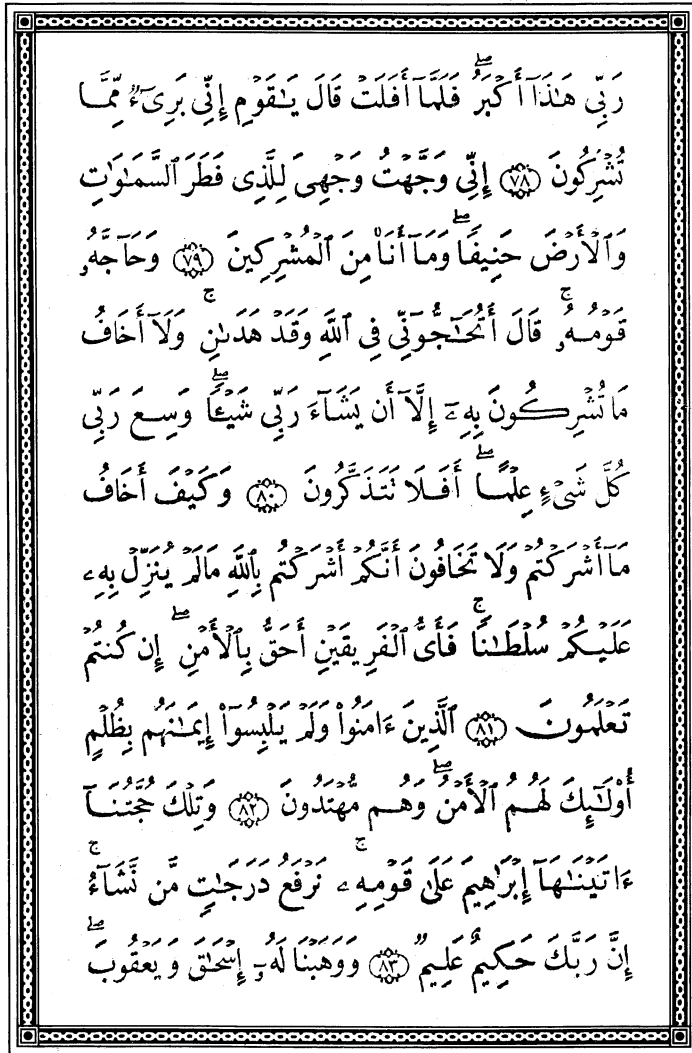 رَبِّى هَـٰذَآ أَكْبَرُ ۖ فَلَمَّآ أَفَلَتْ قَالَ يَـٰقَوْمِ إِنِّى بَرِىٓءٌ مِّمَّا
تُشْرِكُونَ ﴿٧٨﴾ إِنِّى وَجَّهْتُ وَجْهِىَ لِلَّذِى فَطَرَ ٱلسَّمَـٰوَٰتِ
وَٱلْأَرْضَ حَنِيفًا ۖ وَمَآ أَنَا۠ مِنَ ٱلْمُشْرِكِينَ ﴿٧٩﴾ وَحَآجَّهُۥ
قَوْمُهُۥ ۚ قَالَ أَتُحَـٰٓجُّوٓنِّى فِى ٱللَّهِ وَقَدْ هَدَىٰنِ ۚ وَلَآ أَخَافُ
مَا تُشْرِكُونَ بِهِۦٓ إِلَّآ أَن يَشَآءَ رَبِّى شَيْـًٔا ۖ وَسِعَ رَبِّى
كُلَّ شَىْءٍ عِلْمًا ۖ أَفَلَا تَتَذَكَّرُونَ ﴿٨٠﴾ وَكَيْفَ أَخَافُ
مَآ أَشْرَكْتُمْ وَلَا تَخَافُونَ أَنَّكُمْ أَشْرَكْتُم بِٱللَّهِ مَا لَمْ يُنَزِّلْ بِهِۦ
عَلَيْكُمْ سُلْطَـٰنًا ۚ فَأَىُّ ٱلْفَرِيقَيْنِ أَحَقُّ بِٱلْأَمْنِ ۖ إِن كُنتُمْ
تَعْلَمُونَ ﴿٨١﴾ ٱلَّذِينَ ءَامَنُوا۟ وَلَمْ يَلْبِسُوٓا۟ إِيمَـٰنَهُم بِظُلْمٍ
أُو۟لَـٰٓئِكَ لَهُمُ ٱلْأَمْنُ ۖ وَهُم مُّهْتَدُونَ ﴿٨٢﴾ وَتِلْكَ حُجَّتُنَآ
ءَاتَيْنَـٰهَآ إِبْرَٰهِيمَ عَلَىٰ قَوْمِهِۦ ۚ نَرْفَعُ دَرَجَـٰتٍ مَّن نَّشَآءُ ۚ
إِنَّ رَبَّكَ حَكِيمٌ عَلِيمٌ ﴿٨٣﴾ وَوَهَبْنَا لَهُۥٓ إِسْحَـٰقَ وَيَعْقُوبَ ۖ